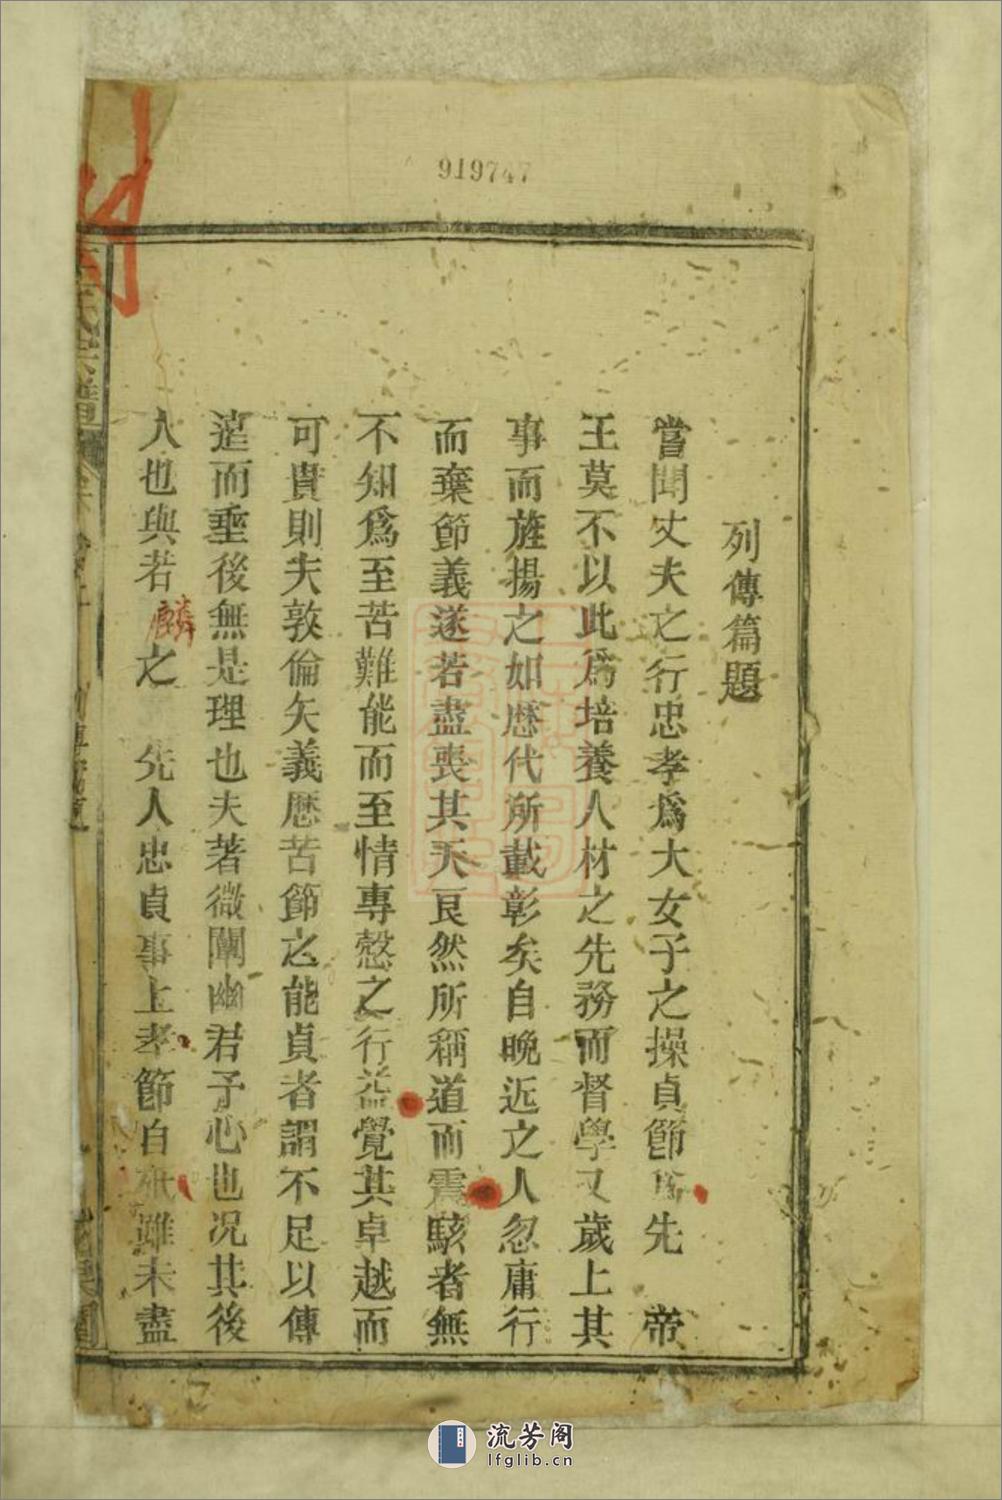 919747
列傳篇題
嘗聞丈夫之行忠孝爲大女子之操貞節爲先　帝
王莫不以此爲培養人材之先務而督學又歲上其
事而旌揚之如歷代所載彰矣自晚近之人忽庸行
而棄節義遂若盡喪其天良然所稱道而震駭者無
不知爲至苦難能而至情專慤之行益覺其卓越而
可貴則夫敦倫矢義歷苦節之能貞者謂不足以傳
遠而垂後無是理也夫著微闡幽君子心也况其後
人也與若麟之　先人忠貞事上孝節自矢雖未盡
氏宗譜
列傳篇題
流芳阁
lfglib.cn